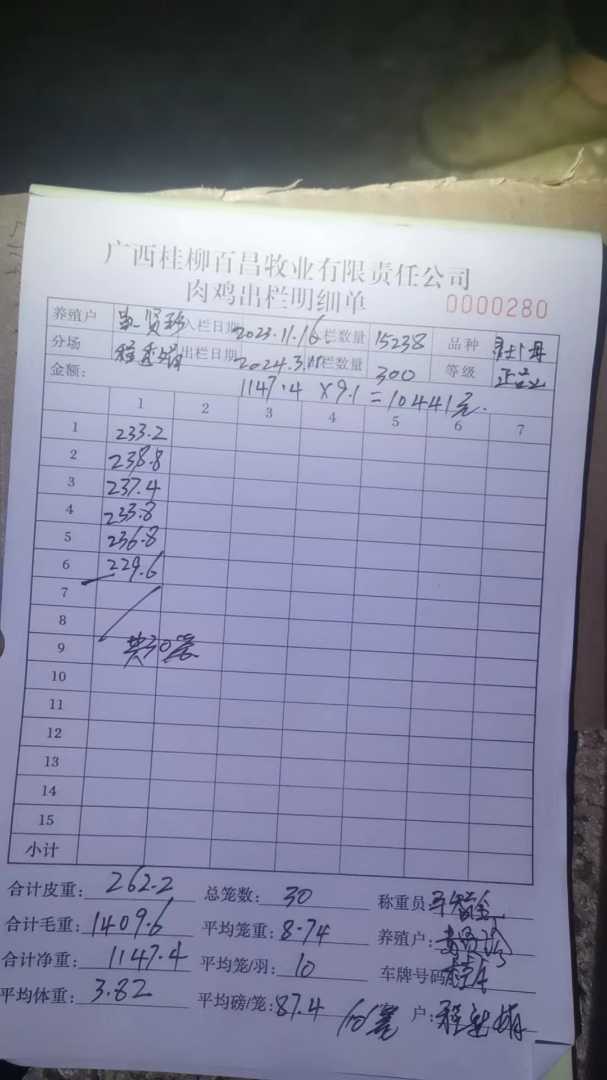 广西桂柳百昌牧业有限责任公司
肉鸡出栏明细单 0000280
养殖户 贤珍 入栏日期 2023.11.16 栏数量 15238 品种
分场 出栏日期 2024.3.11 栏数量 300 等级 正品
金额: 1147.4 ×9.1 = 10441元.
1 2 3 4 5 6 7
1 233.2
2 238.8
3 237.4
4 233.8
5 236.8
6 229.6
7
8
9 共30笼
10
11
12
13
14
15
小计
合计皮重: 262.2 总笼数: 30 称重员
合计毛重: 1409.6 平均笼重: 8.74 养殖户:
合计净重: 1147.4 平均笼/羽: 10 车牌号码
平均体重: 3.82 平均磅/笼: 87.4 户: